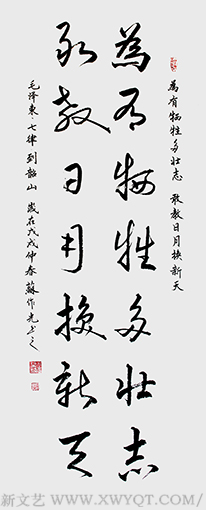 為有犧牲多壯志
敢教日月換新天
為有犧牲多壯志 敢教日月換新天
毛泽東·七律到韶山 歲在戊戌仲春蘇作光书之
新文艺/WWW.XWYQT.COM/